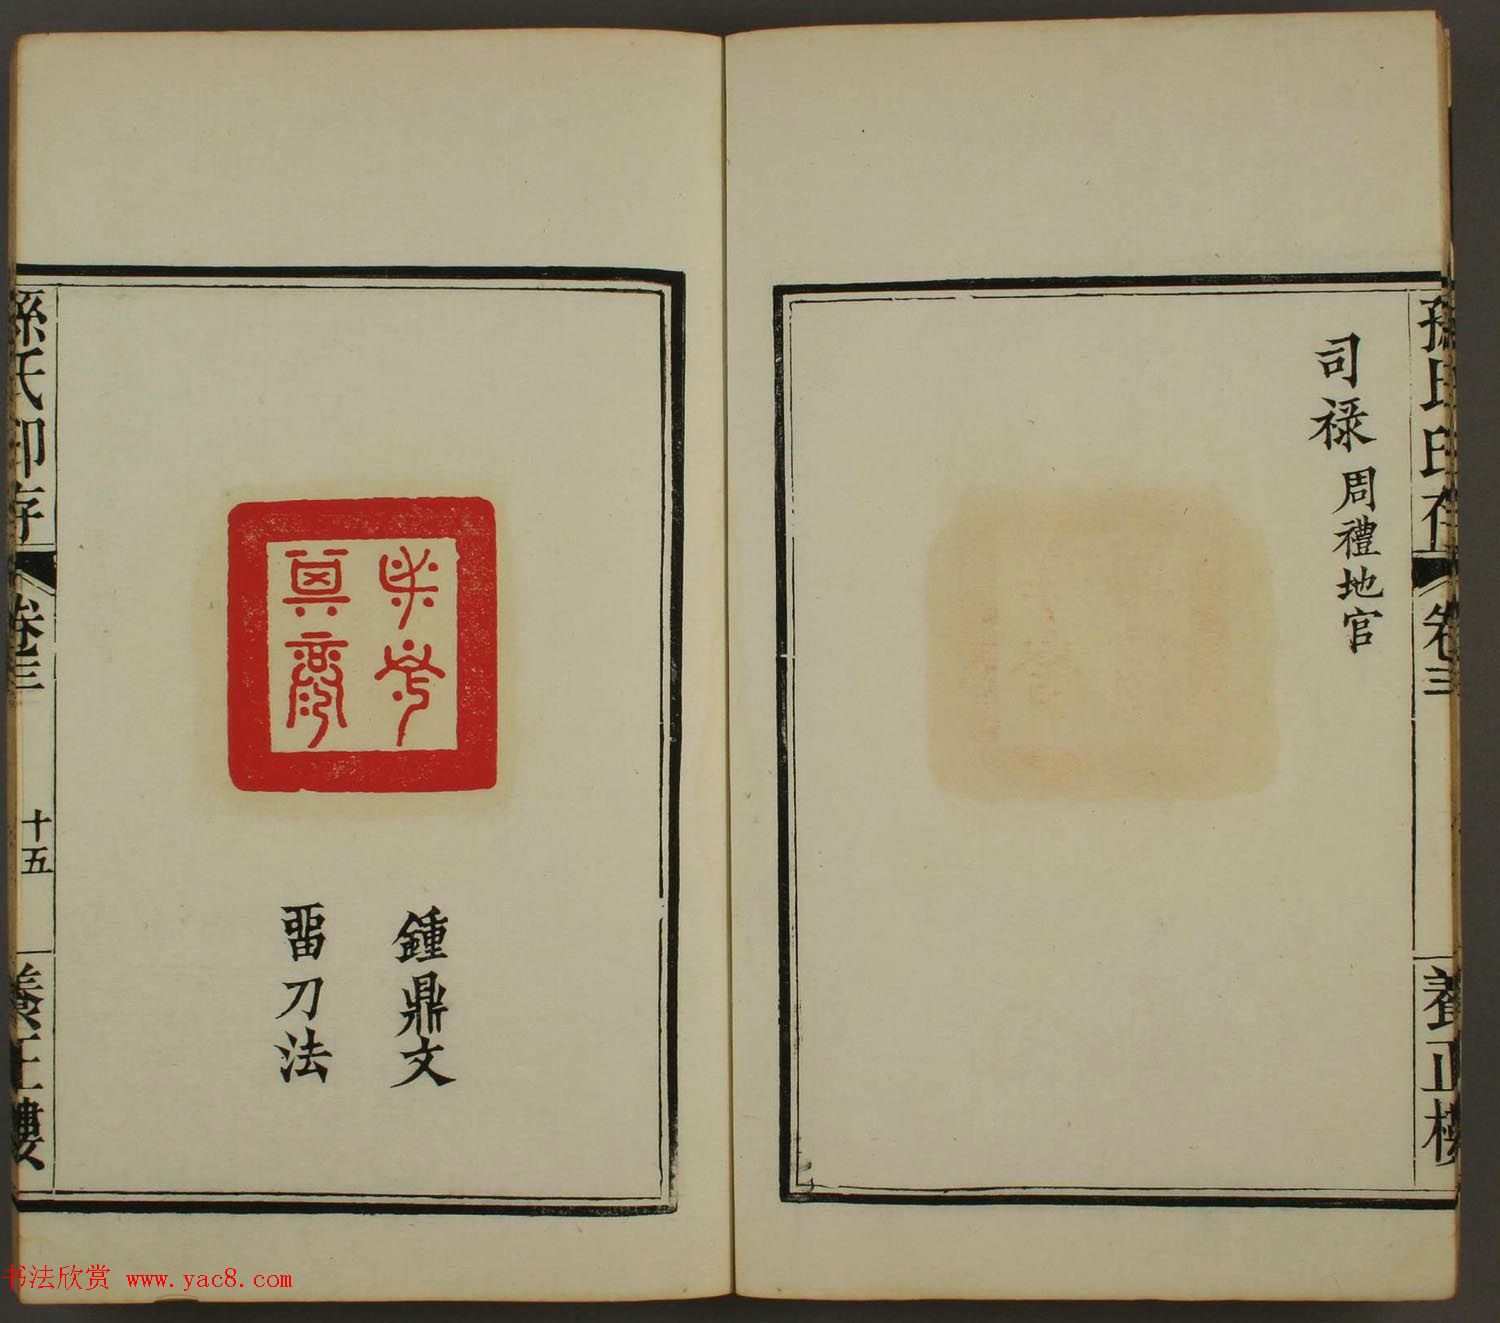 孫氏印存
卷三
養正樓
司祿周禮地官
鍾鼎文
畱刀法
孫氏印存
卷三
十五
養正樓
书法欣赏 www.yac8.com